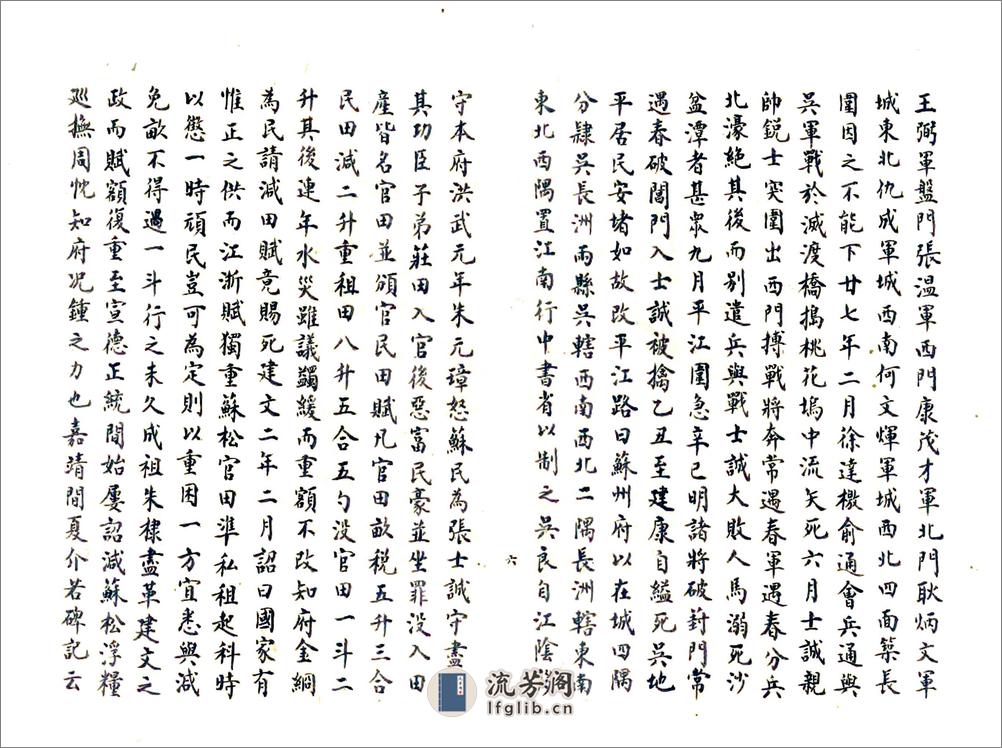 王弼軍盤門張温軍西門康茂才軍北門耿炳文軍
城東北仇成軍城西南何文煇軍城西北四面築長
圍因之不能下廿七年二月徐達檄俞通會兵通與
吳軍戰於滅渡橋搗桃花塢中流矢死六月士誠親
帥銳士突圍出西門搏戰將奔常遇春軍遇春分兵
北濠絶其後而別遣兵與戰士誠大敗人馬溺死沙
盆潭者甚眾九月平江圍急辛巳明諸將破葑門常
遇春破閶門入士誠被擒乙丑至建康自縊死吳地
平居民安堵如故改平江路曰蘇州府以在城四隅
分隸吳長洲兩縣吳轄西南西北二隅長洲轄東南
東北西隅置江南行中書省以制之吳良自江陰
六
守本府洪武元年朱元璋怒蘇民為張士誠守盡
其功臣子弟莊田入官後惡富民豪並坐罪没入田
產皆名官田並頒官民田賦凡官田畝税五升三合
民田減二升重租田八升五合五勺没官田一斗二
升其後連年水災雖議蠲緩而重額不改知府金綱
為民請減田賦竟賜死建文二年二月詔曰國家有
惟正之供而江浙賦獨重蘇松官田準私租起科時
以懲一時頑民豈可為定則以重困一方宜悉與減
免畝不得過一斗行之未久成祖朱棣盡革建文之
政而賦額復重至宣德正統間始屢詔減蘇松浮糧
廵撫周忱知府况鍾之力也嘉靖間夏介若碑記云
流芳阁
lfglib.cn